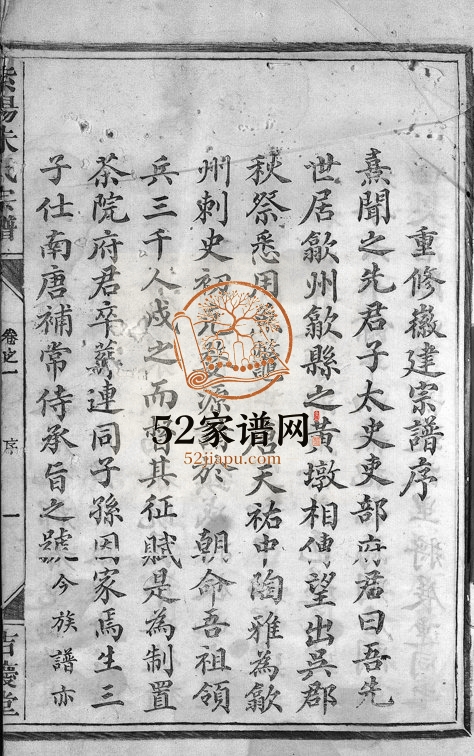 重修徽建宗譜序
熹聞之先君子太史吏部府君曰吾先
世居歙州歙縣之黃墩相傳望出吳郡
秋祭悉用魚鱉 天祐中陶雅為歙
州刺史初 源 於 朝命吾祖領
兵三千人戍之而 其征賦是為制置
茶院府君卒葬連同子孫因家焉生三
子仕南唐補常侍承旨之號今族譜亦
紫陽朱氏宗譜
卷之一
序
一
吉慶堂
52家谱网
52jiapu.com